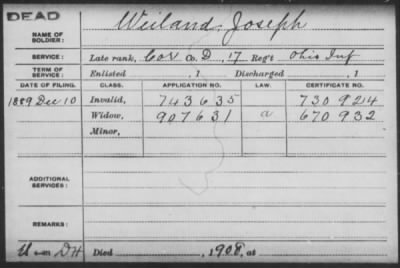 DEAD
NAME OF SOLDIER: Weiland, Joseph
SERVICE: Late rank, Cor Co. D, 17 Reg't Ohio Inf
TERM OF SERVICE: Enlisted , 1 Discharged , 1
DATE OF FILING. CLASS. APPLICATION NO. LAW. CERTIFICATE NO.
1889 Dec 10 Invalid, 743635 730924
Widow, 907631 a 670932
Minor,
ADDITIONAL SERVICES:
REMARKS:
Died , 1908, at